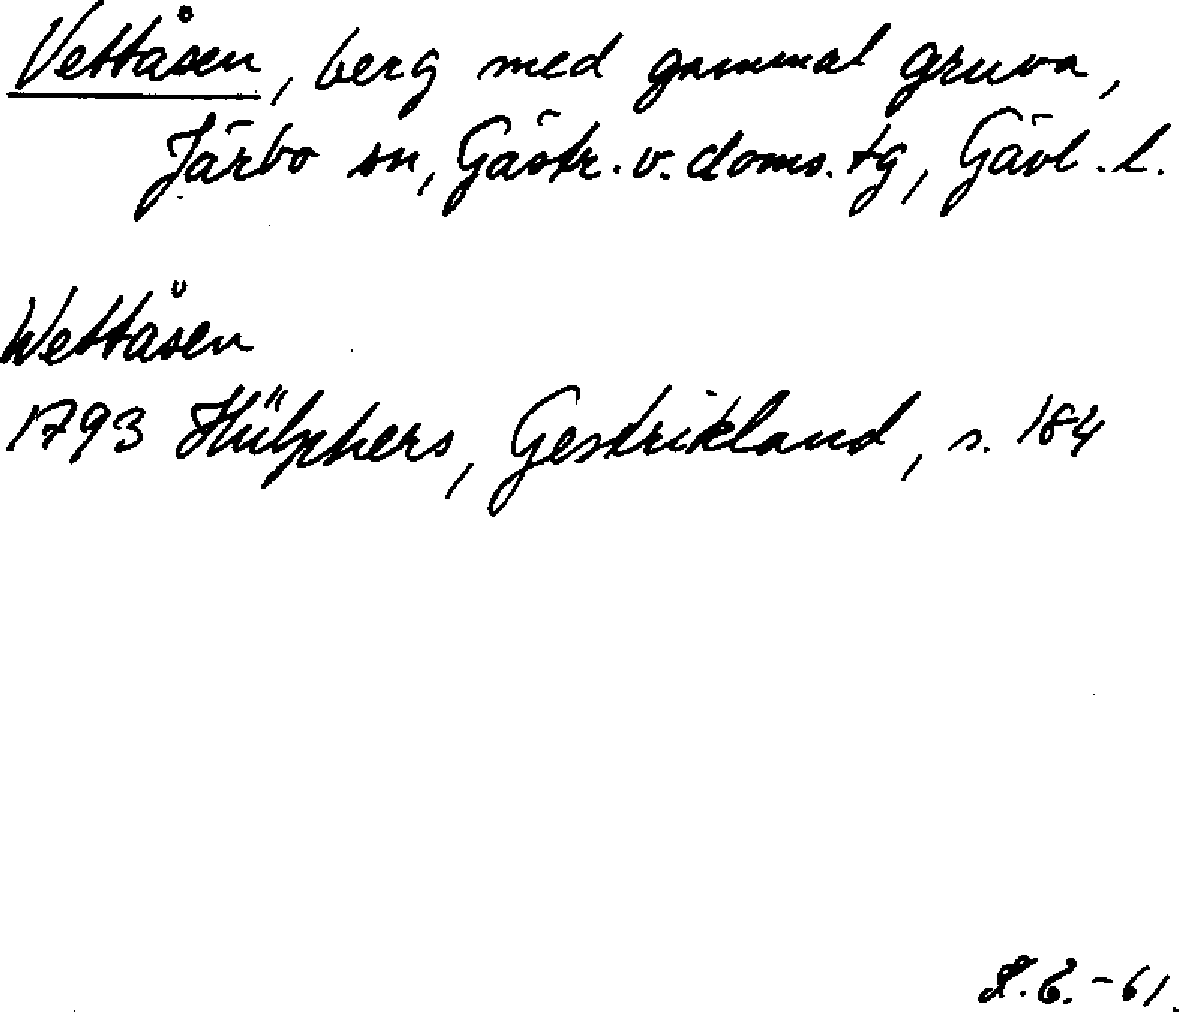 Vettåsen, berg med gammal gruva,
Järbo sn, Gästr. v. doms. tg, Gävl. l.
Wettåsen
1793 Hülphers, Gestrikland, s. 184
-61.